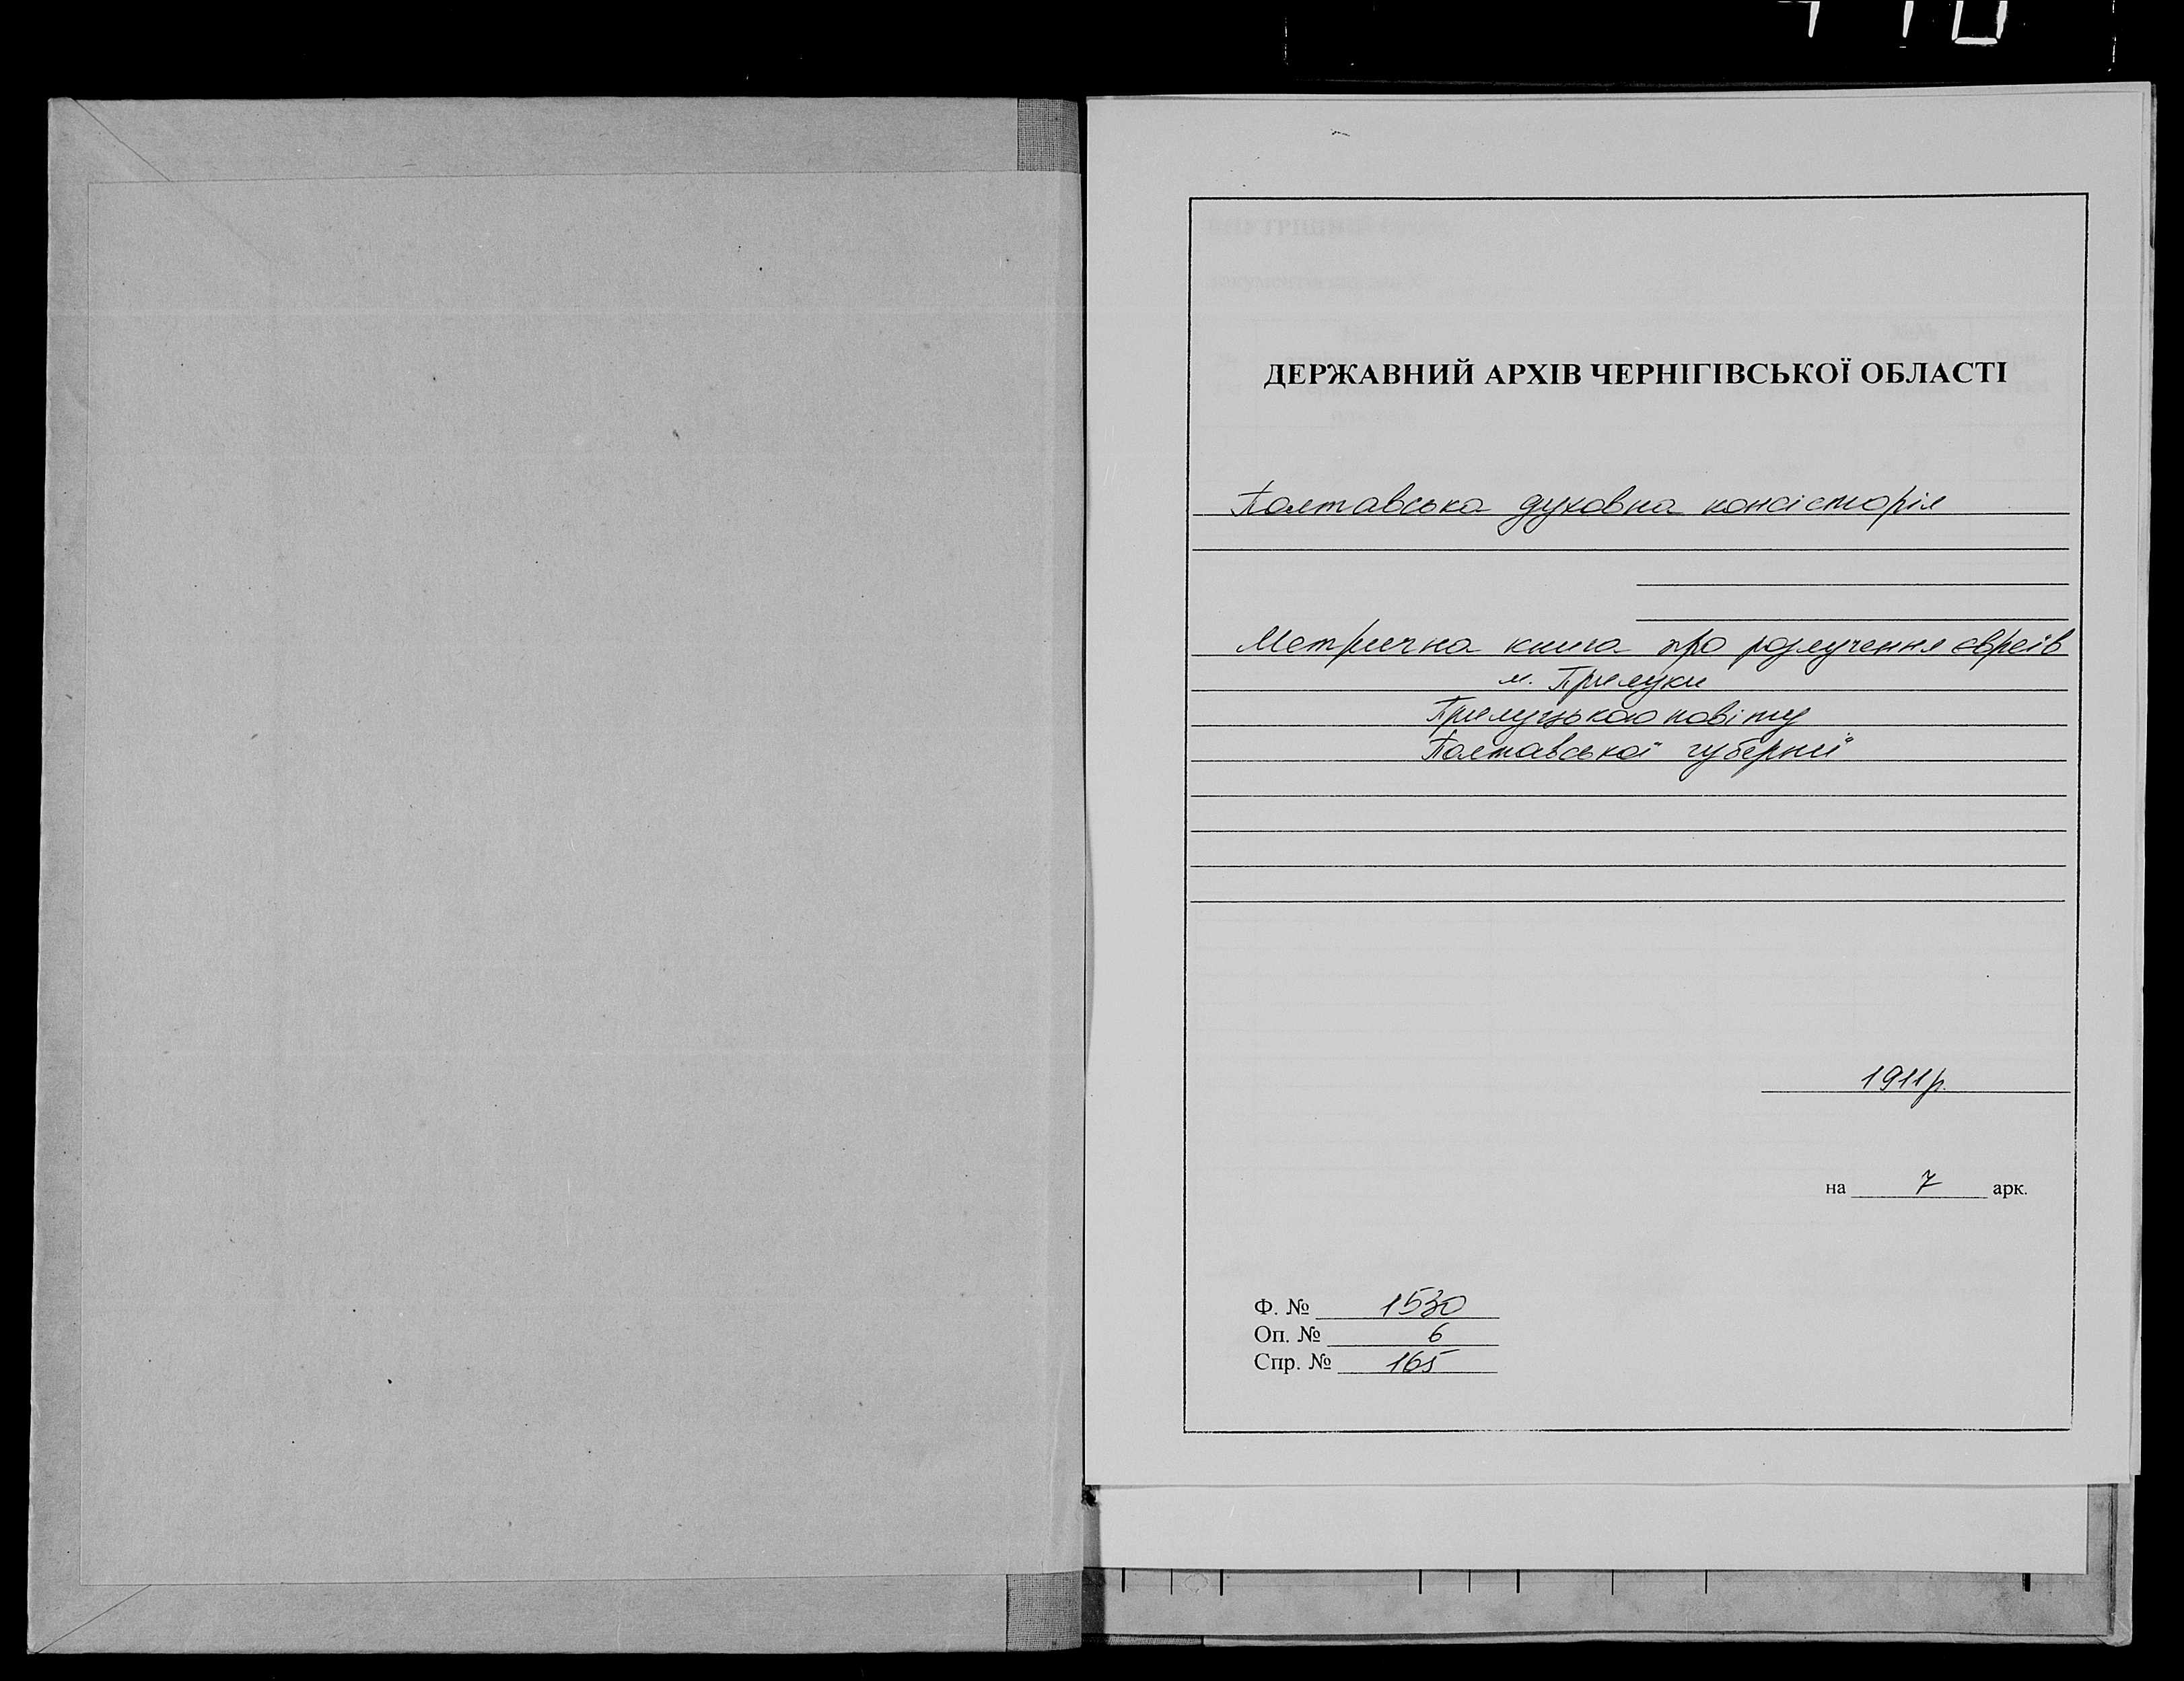 ДЕРЖАВНИЙ АРХІВ ЧЕРНІГІВСЬКОЇ ОБЛАСТІ
Полтавська духовна консисторія
Метрична книга про розлучення євреїв
м. Прилуки
Прилуцького повіту
Полтавської губернії
1911р.
на 7 арк.
Ф. № 1530
Оп. № 6
Спр. № 165